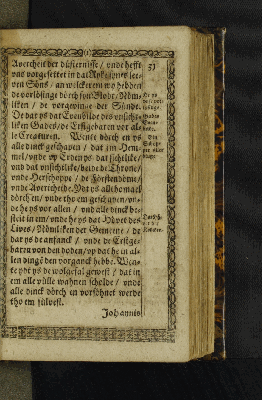 Averheit der düsternisse / vnde hefft
vns vorgesettet in dat Ryke synes lee-
uen Söns / an welckerem wy hebben
de vorlösinge dörch syn Blodt / Nöm-
liken / de vorgevinge der Sünde.
De dar ys dat Evenbilde des vnsicht-
liken Gades / de Erstgebaren vor al-
le Creaturen. Wente dörch en ys
alle dinck geschapen / dat im Hem-
mel / vnde vp Erden ys dat sichtlike /
vnd dat vnsichtlike / beide de Throne /
vnde Herschoppe / de Förstendöme /
vnde Avericheide. Ydt ys allthomael
dörch en / vnde tho em geschapen / vn-
de he ys vor allen / vnd alle dinck be-
steit in em / vnde he ys dat Hövet des
Lives / Nömliken der Gemeine / de
dar ys de anfanck / vnde de Erstge-
baren van den doden / vp dat he in al-
len dingen den vorganck hebbe. Wen-
te ydt ys de wolgefal gewest / dat in
em alle vülle wahnen scholde / vnde
alle dinck dörch en vorsöhnet werde
tho em sülvest.
Johannis